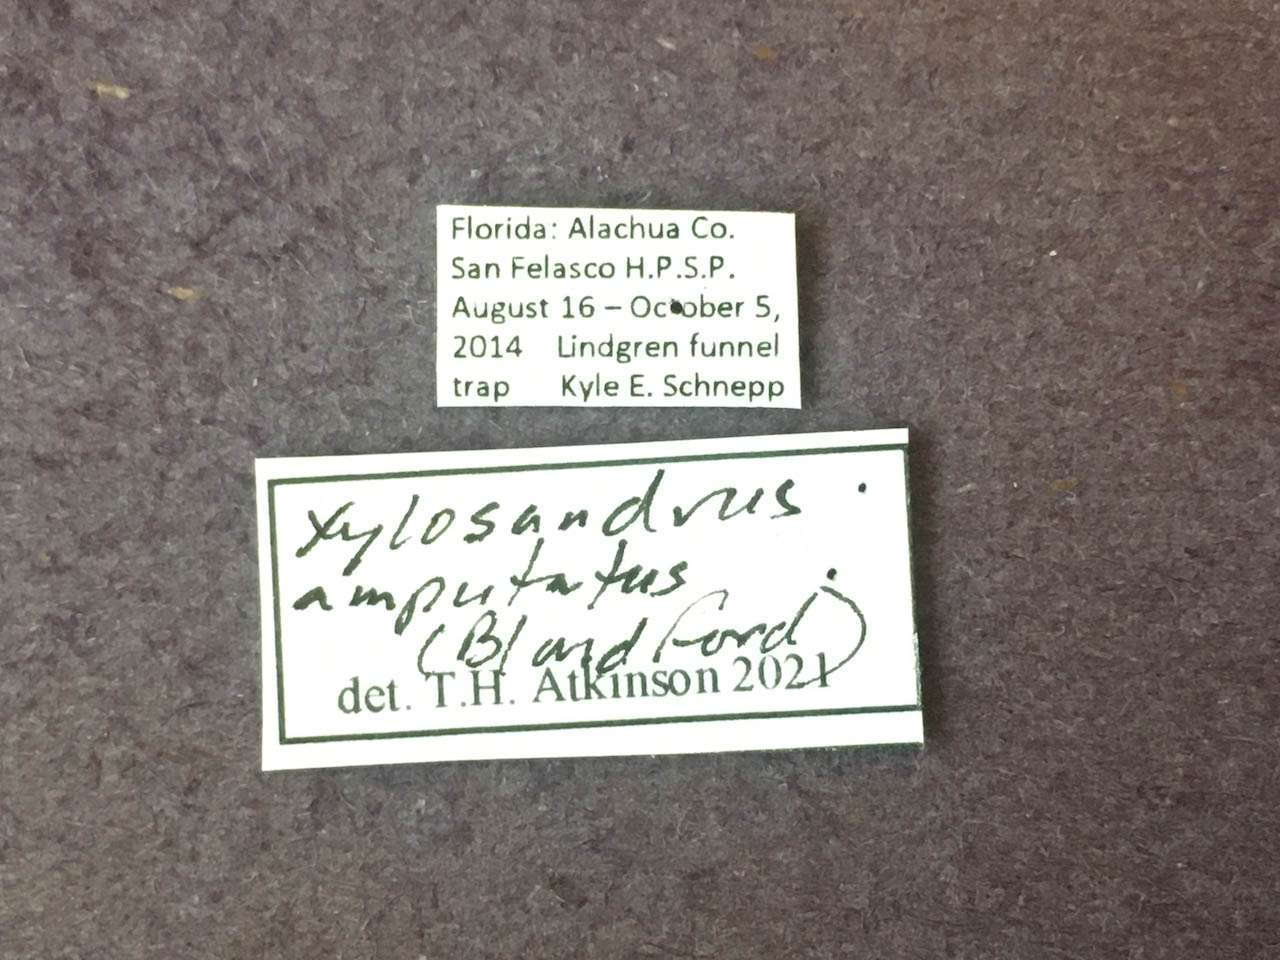 Florida: Alachua Co.
San Felasco H.P.S.P.
August 16 – October 5,
2014 Lindgren funnel
trap Kyle E. Schnepp
Xylosandrus
amputatus
(Blandford)
det. T.H. Atkinson 2021